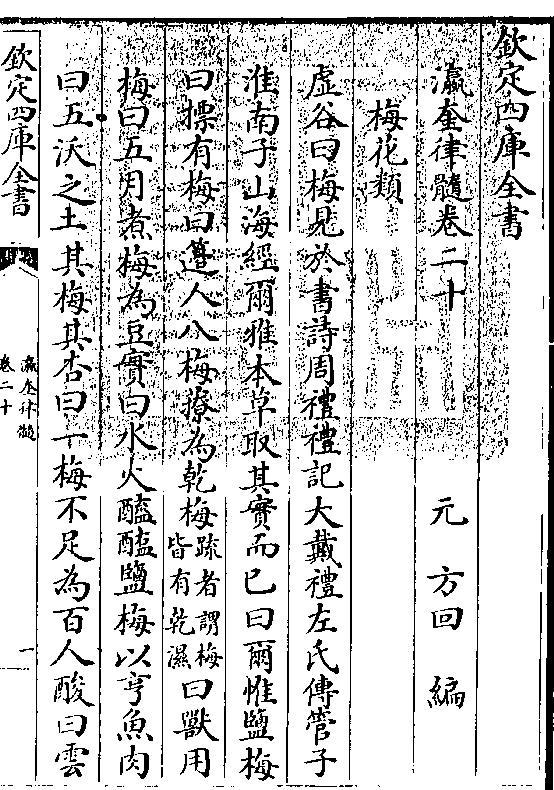 欽定四庫全書
瀛奎律髓卷二十
元 方回 編
梅花類
虛谷曰梅見於書詩周禮禮記大戴禮左氏傳管子
淮南子山海經爾雅本草取其實而已曰爾惟鹽梅
曰摽有梅曰籩人八梅䕩為乾梅疏者謂梅皆有乾濕曰獸用
梅曰五月煮梅為豆實曰水火醯醢鹽梅以亨魚肉
曰五沃之土其梅其杏曰一梅不足為百人酸曰雲
欽定四庫全書
瀛奎律髓
卷二十
一